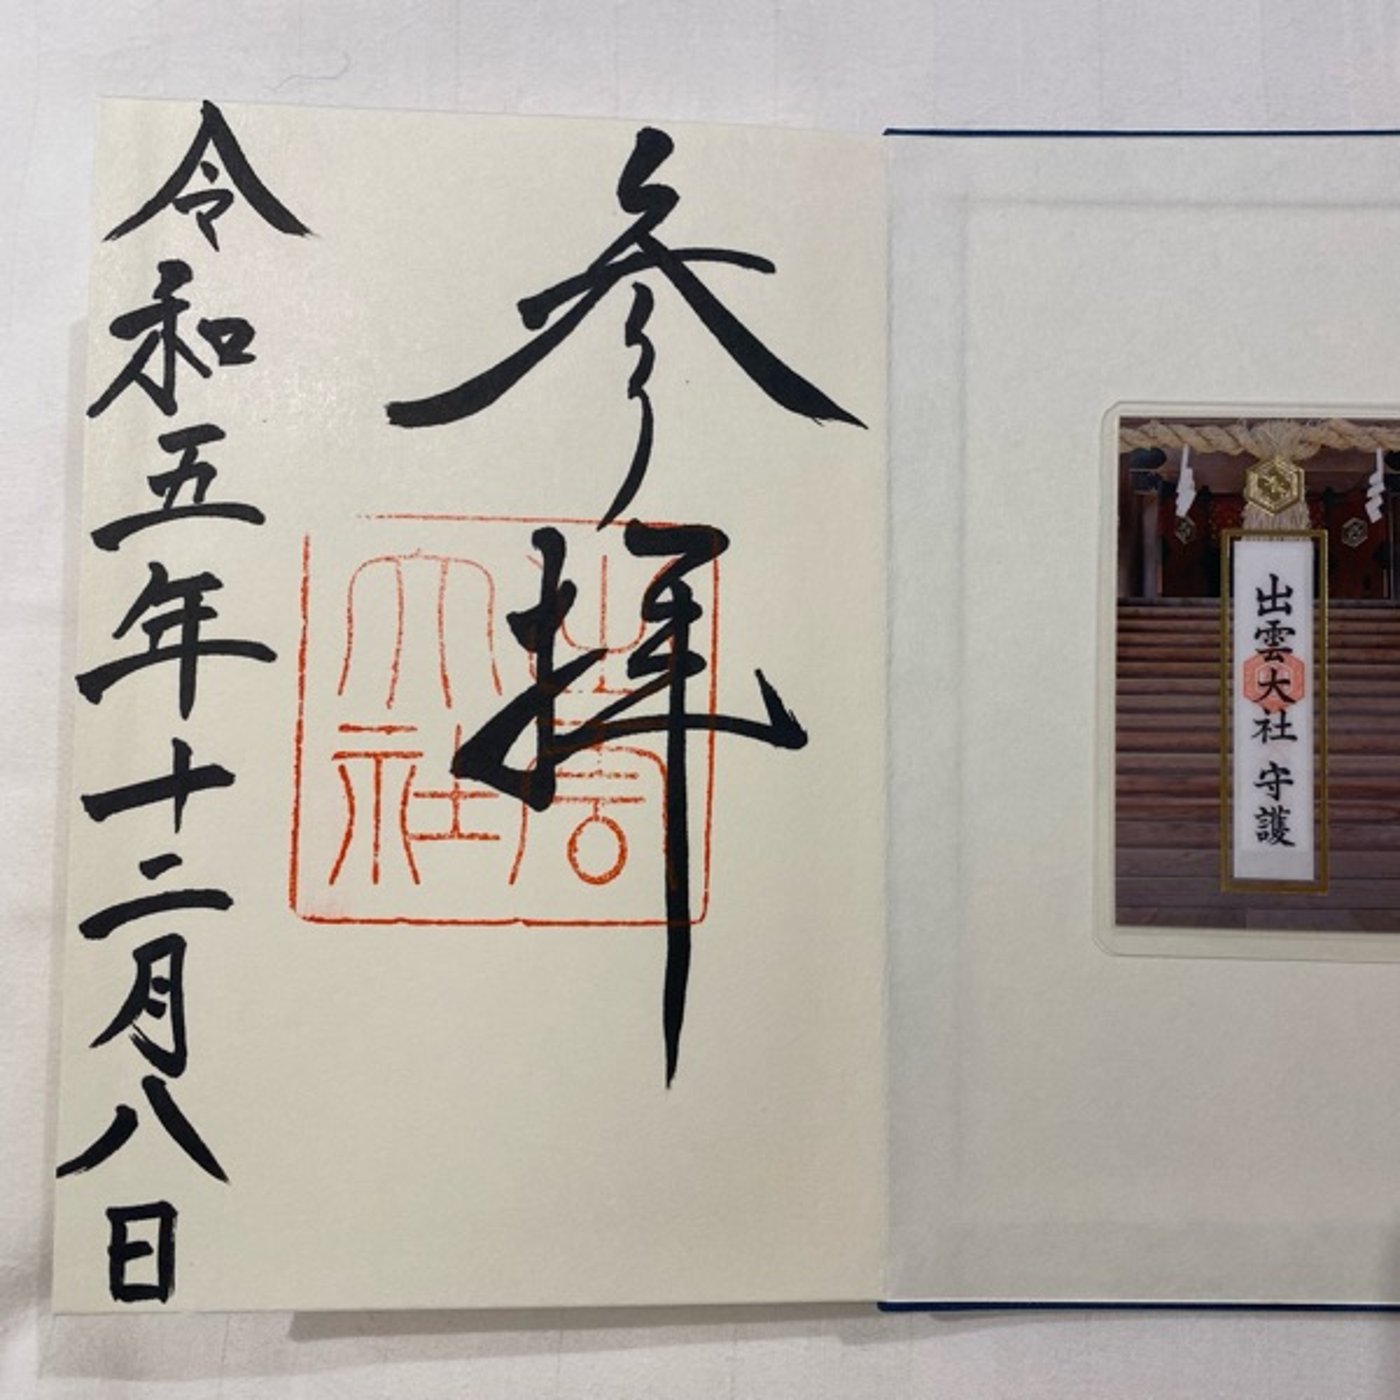 出雲大社守護
参拝
出雲大社
令和五年十二月八日